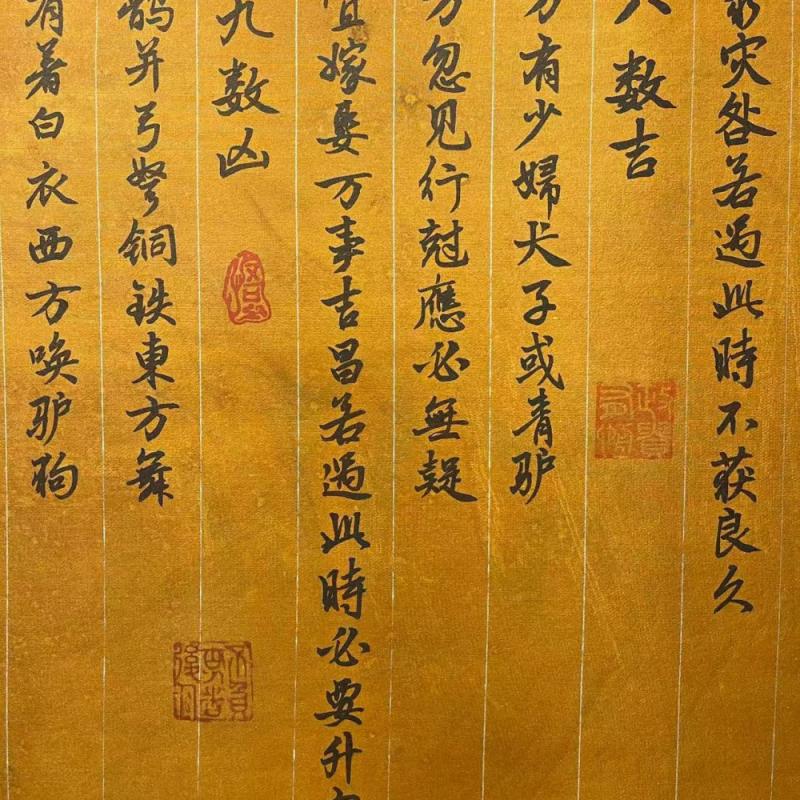 灾咎若過此時不获良久
数吉
方有少婦犬子或青驴
忽見行尅應必無疑
宜嫁娶万事吉昌若過此時必要升
九数凶
鹊并弓弩铜铁東方舞
有著白衣西方唤驴狗